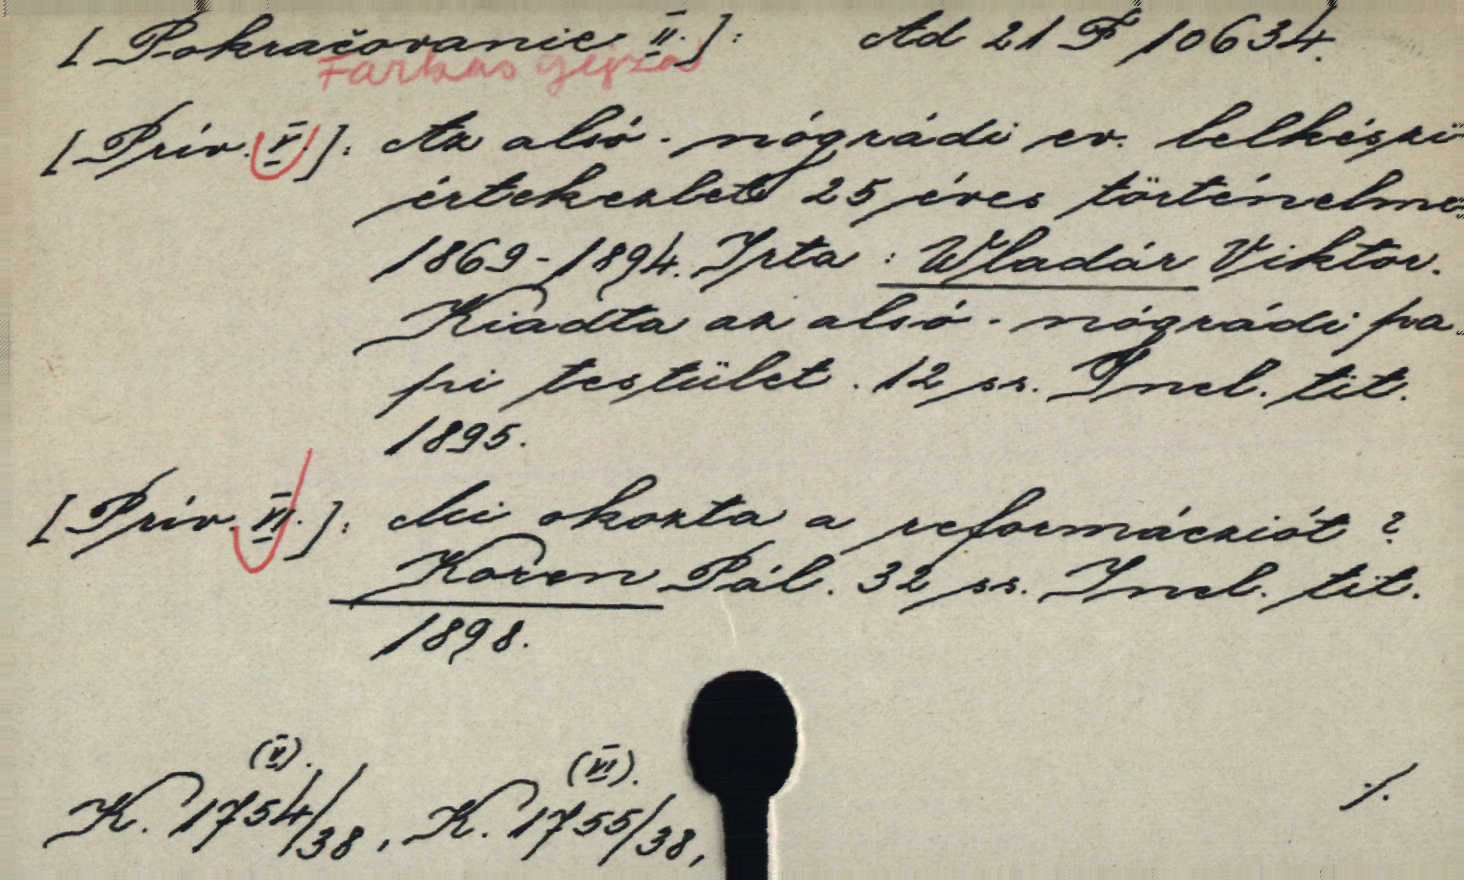 [Pokračovanie II.]: Ad 21 F 10634.
Farkas Gejza
[Prív. V.]: Az alsó-nógrádi ev. lelkészi
értekezlet 25 éves történelme
1869-1894. Irta: Wladár Viktor.
Kiadta az alsó-nógrádi pa-
pi testület. 12 ss. Incl. tit.
1895.
[Prív. VI.]: Mi okozta a reformácziót?
Koren Pál. 32 ss. Incl. tit.
1898.
(V). (VI).
K. 1754/38, K. 1755/38,
./.